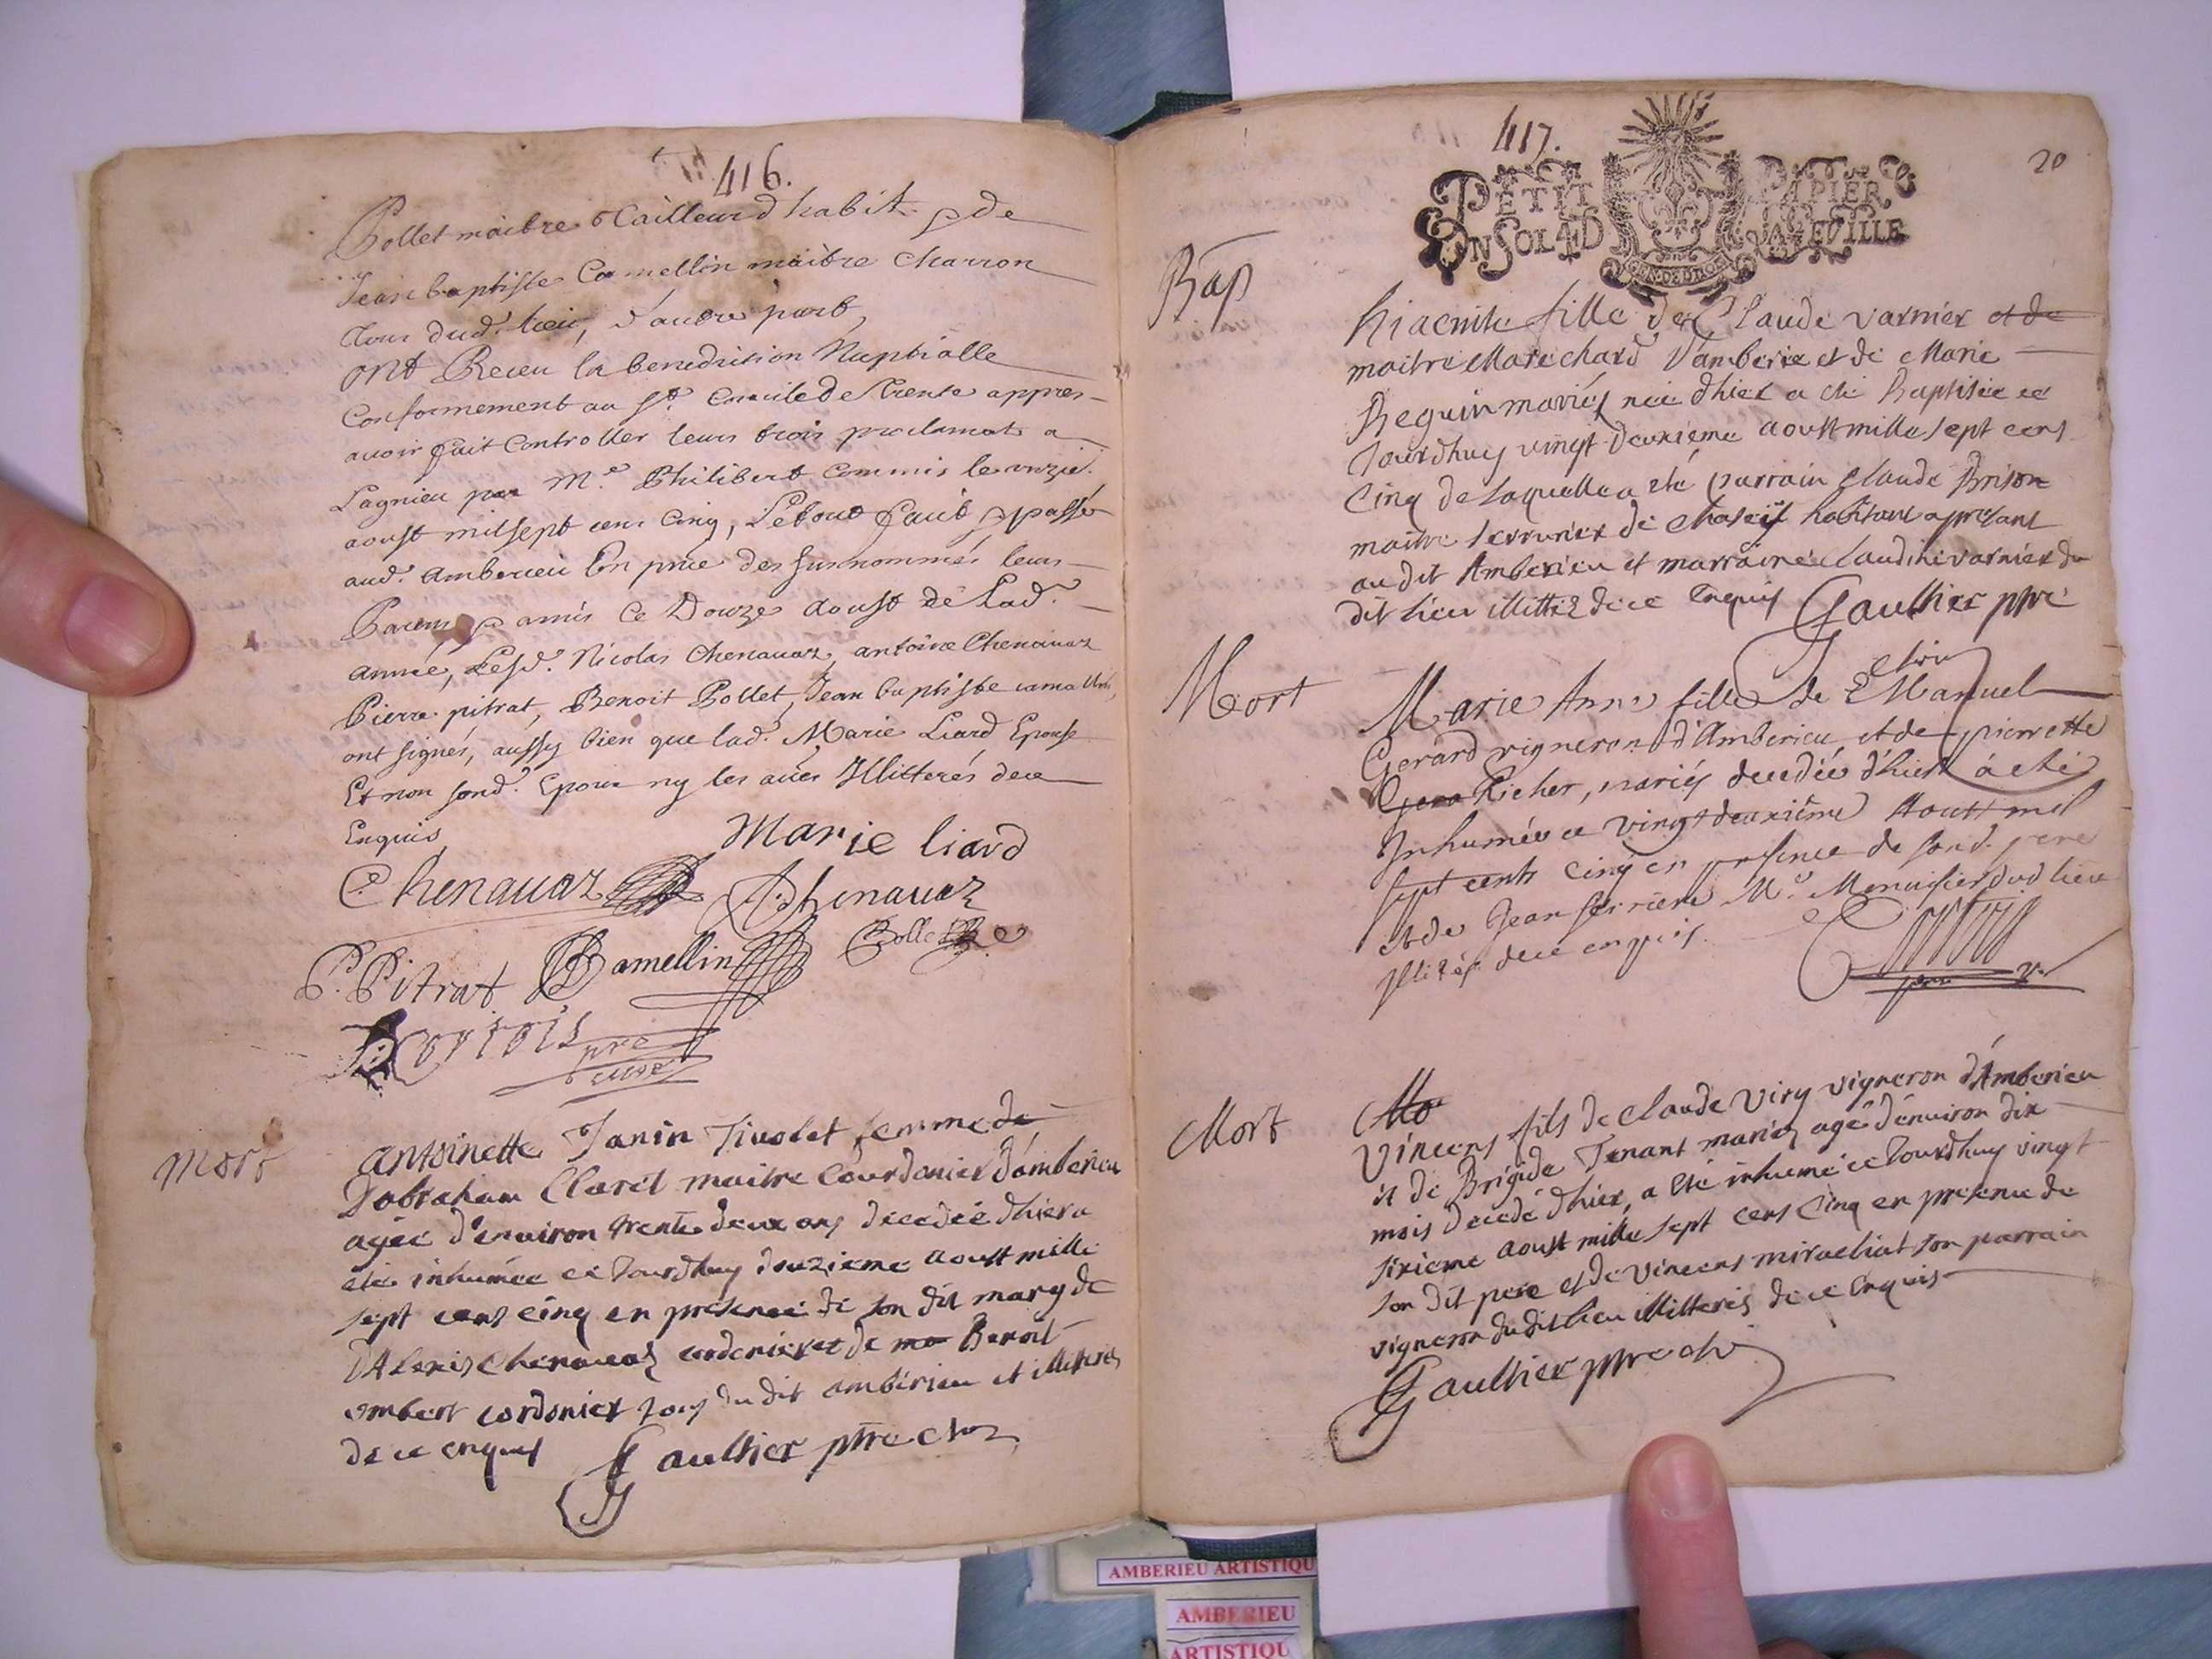 416.
Pollet maitre Tailleur d'habit & de
Jean baptiste Camellin maitre Charron
Tous dud. lieu, d'autre part,
ont Receu la benediction Nuptialle
Conformement au St. Concile de Trente appres
avoir fait Controller leurs trois proclamat. a
Lagnieu par Me. Philibert commis le unzie.
aoust mil sept cens Cinq, Le tout fait & passé
aud. Amberieu En pnce des susnommés leurs
Parens & amis Ce Douze Aoust de Lad.
année, Lesd. Nicolas Chenavaz, antoine Chenavaz
Pierre pitrat, Benoit Pollet, Jean baptiste
ont signés, aussy bien que lad. Marie Liard Epouse
Et non sond. Epoux ny les aues Illitterés de ce
Enquis
Marie liard
Chenavaz A. Chenavaz
P. Pitrat JB Camellin Pollet
Cortois pre
cure
Mort
Antoinette Janin Tivolet femme de
D'abraham Claret maitre Courdanier d'amberieu
agée d'environ trente deux ans decedée dhier a
été inhumée ce Jourdhuy douzieme aoust mille
sept cens cinq en presence de son dit mary de
D'Alexis Chenavaz cordonier et de mo Benoit
ombert cordonier tous du dit amberieu et illitterés
de ce enquis Gaulthier ptre
417.
20
PETIT PAPIER
EN SOL 4D LA FEUILLE
Bap
hiacinte fille de Claude varnier et de
maitre Marechard D'amberie et de Marie
Beguin mariés née dhier a été Baptisée ce
Jourdhuy vingt deuxieme aoust mille sept cens
Cinq de laquelle a eté parrain Claude Brison
maitre serrurier de habitant apresant
au dit Amberieu et marraine Claudine varnier du
dit lieu illitterez de ce Enquis Gaulthier ptre
Mort
Marie Anne fille de EManuel
Gerard vigneron d'Amberieu et de pierrette
Gera Richer, mariés decedée d'hier à eté
Inhumée ce vingt deuxième Aoust mil
sept cents Cinq en presence de sond. pere
et de Jean Me. Menuisier dud lieu
Illités de ce enquis.
Mort
Mo
Vincens fils de Claude Viry vigneron d'Amberieu
et de Brigide Tenant mariez agé d'environ dix
mois decedé dhier, a été inhumé ce Jourdhuy vingt
sixieme aoust mille sept cens Cinq en presence de
son dit pere et de Vincens son parrain
vigneron du dit lieu illitterés de ce Enquis
Gaulthier ptre
AMBERIEU ARTISTIQU
AMBERIEU
ARTISTIQU